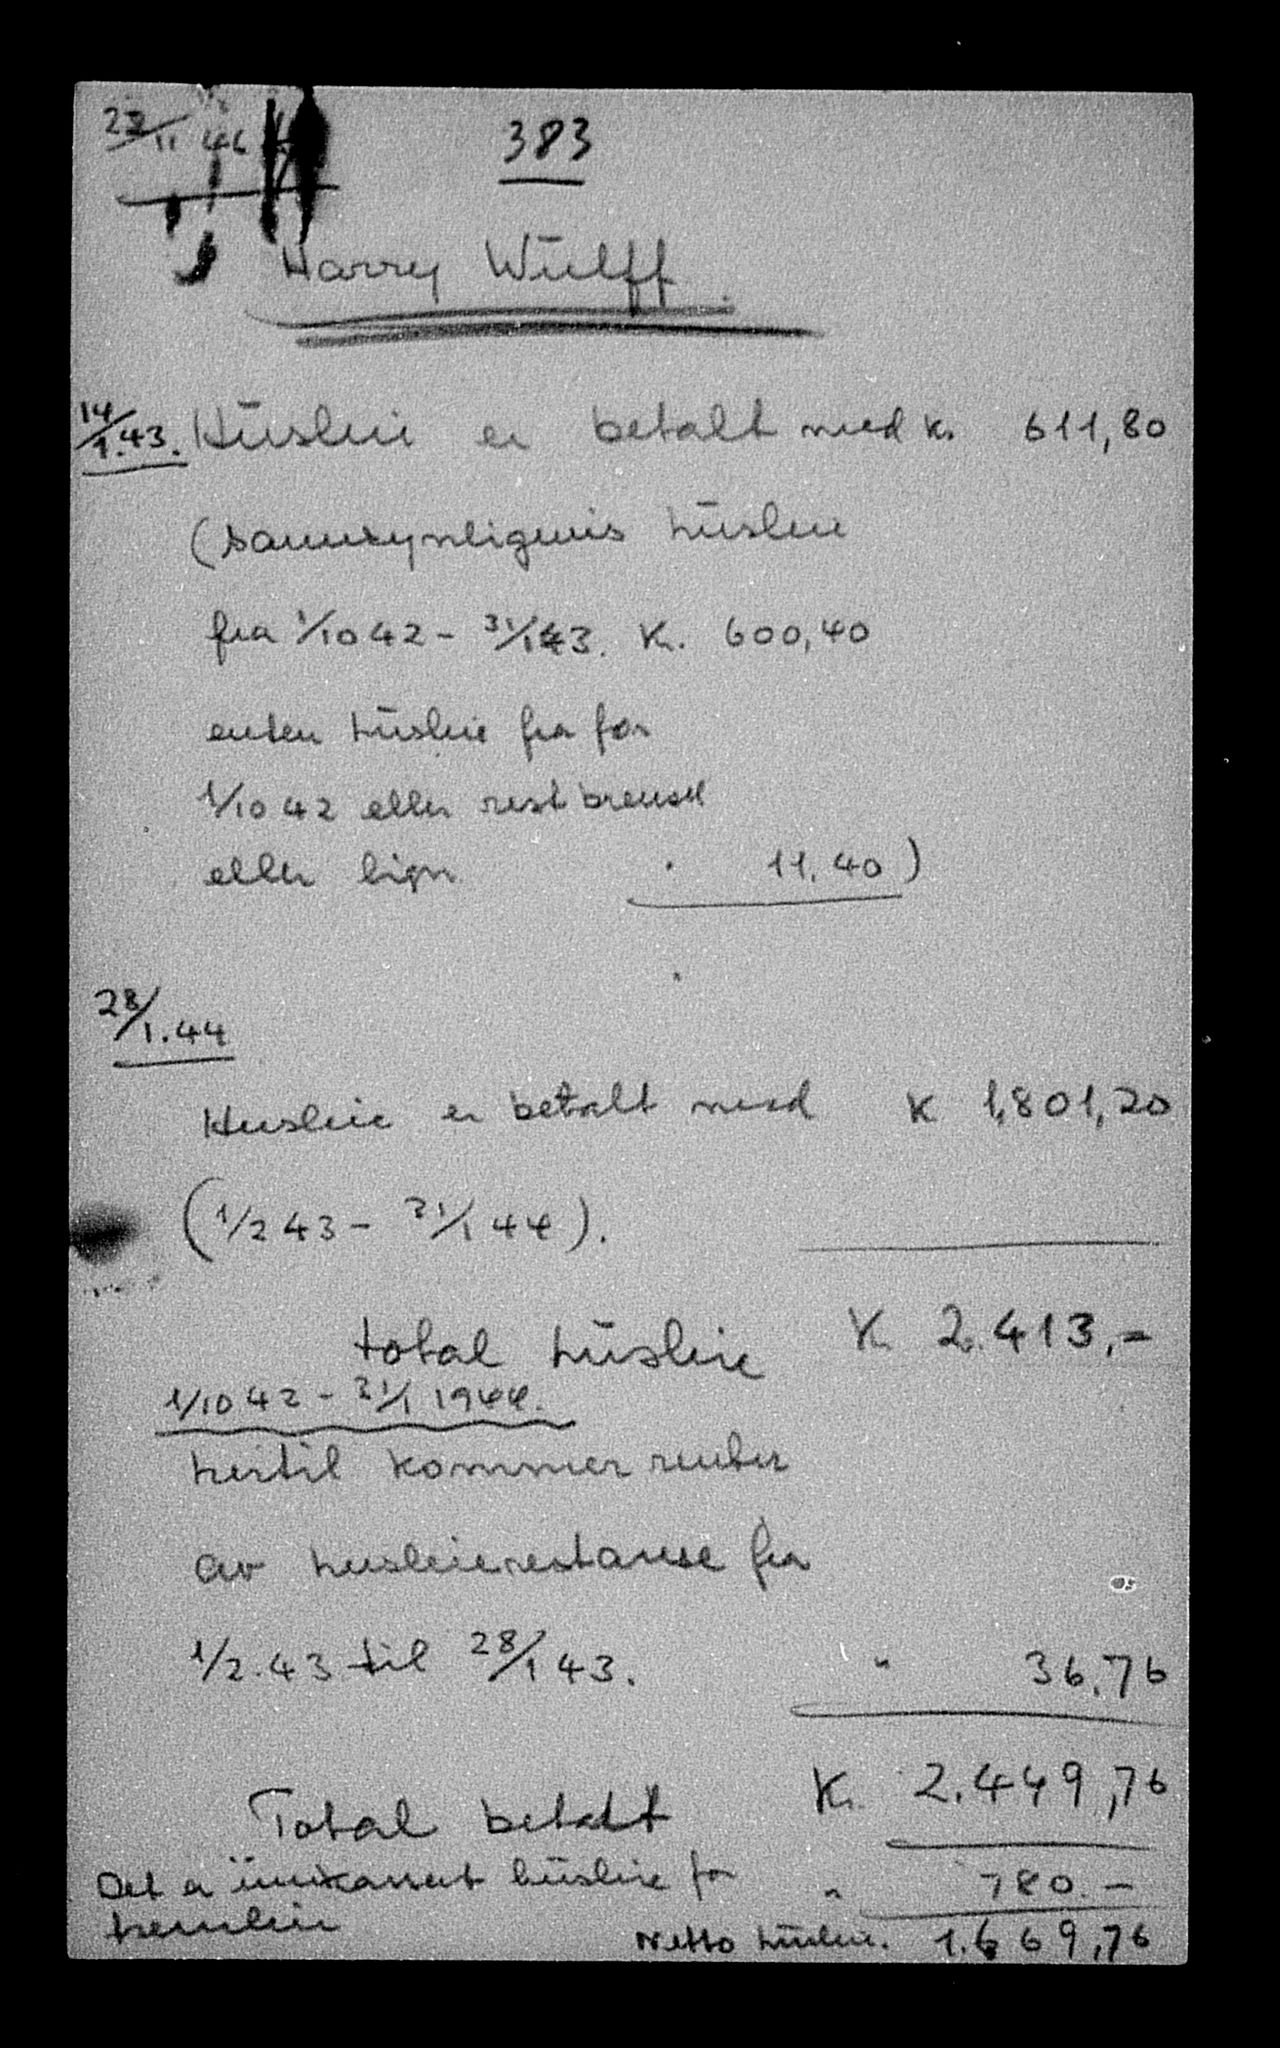 23/11 46
383
Harry Wulff.
14/1.43. Husleie er betalt med K. 611,80
(sannsynligvis husleie
fra 1/10 42 - 31/1 43. K. 600,40
enten husleie fra før
1/10 42 eller rest brensel
eller lign " 11.40)
28/1.44
Husleie er betalt med K 1,801,20
(1/2 43 - 31/1 44).
total husleie K 2.413.-
1/10 42 - 31/1 1944.
hertil kommer renter
av husleierestanse fra
1/2.43 til 28/1 43. " 36.76
Total betalt K. 2.449,76
Det er innkassert husleie for " 780.-
fremleie
Netto husleie. 1.669,76